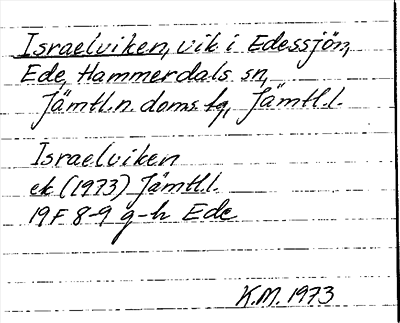 Israelviken, vik i Edessjön,
Ede, Hammerdals sn,
Jämtl.n. doms.tg, Jämtl.l.
Israelviken
ek (1973) Jämtl.l.
19F 8-9 g-h Ede
K.M. 1973